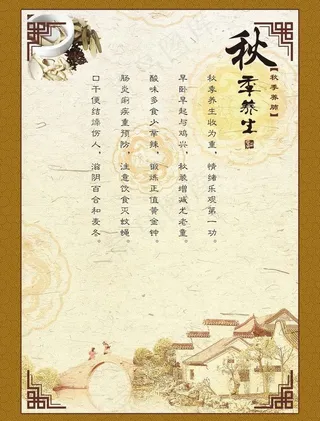 秋季养生
【秋季养肺】
秋季养生收为重，情绪乐观第一功
早卧早起与鸡兴，秋装增减尤老童
酸味多食少辛辣，锻炼正值黄金钟
肠炎痢疾重预防，注意饮食灭蚊蝇
口干便结燥伤人，滋阴百合和麦冬。